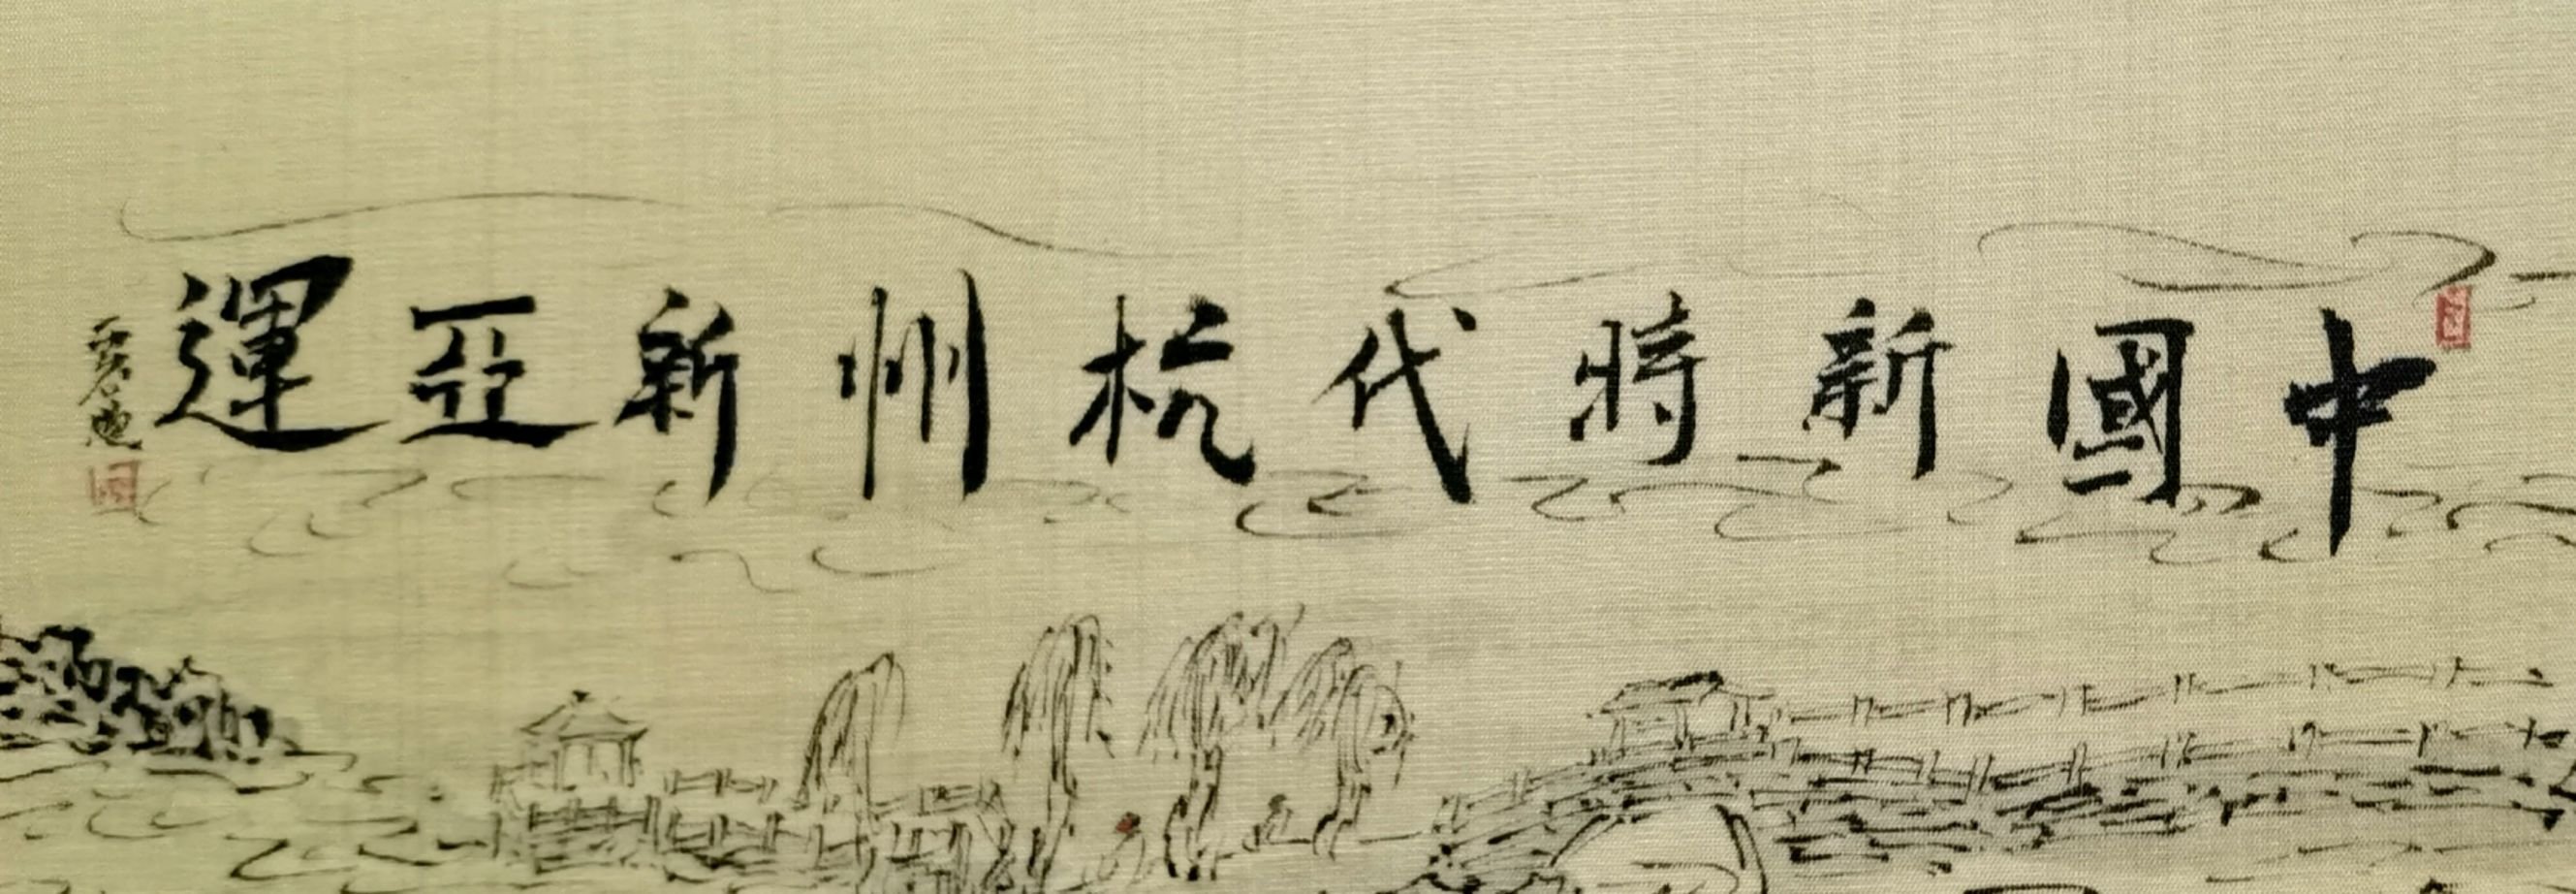 中國新時代杭州新亞運